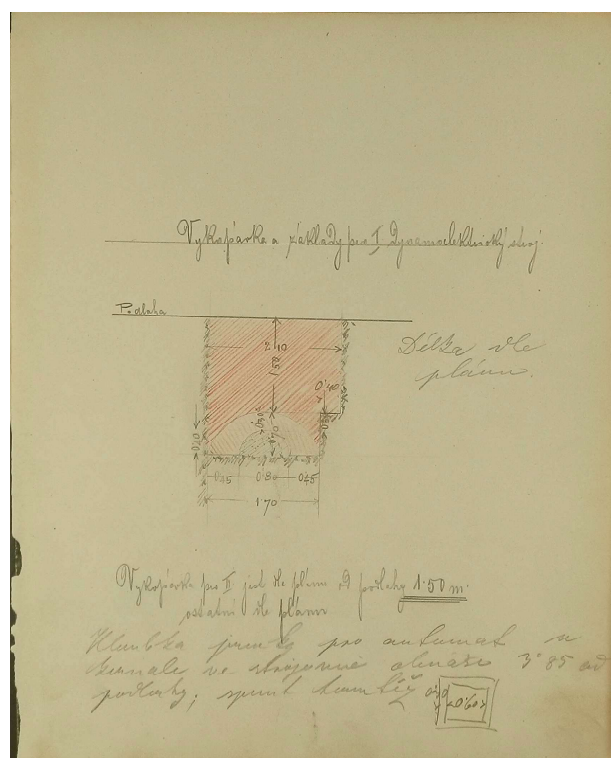 Vykopávka a základy pro I Dynamoelektrický stroj.
Podlaha
2·10
1·50
Délka dle
plánu.
0·20
0·45 0·80 0·45
1·70
Vykopávka pro II jest dle plánu od podlahy 1·50 m.
ostatní dle plánu
Hloubka jímky pro automat u
kanále ve strojovně obnáší 3·85 od
podlahy,
0·60